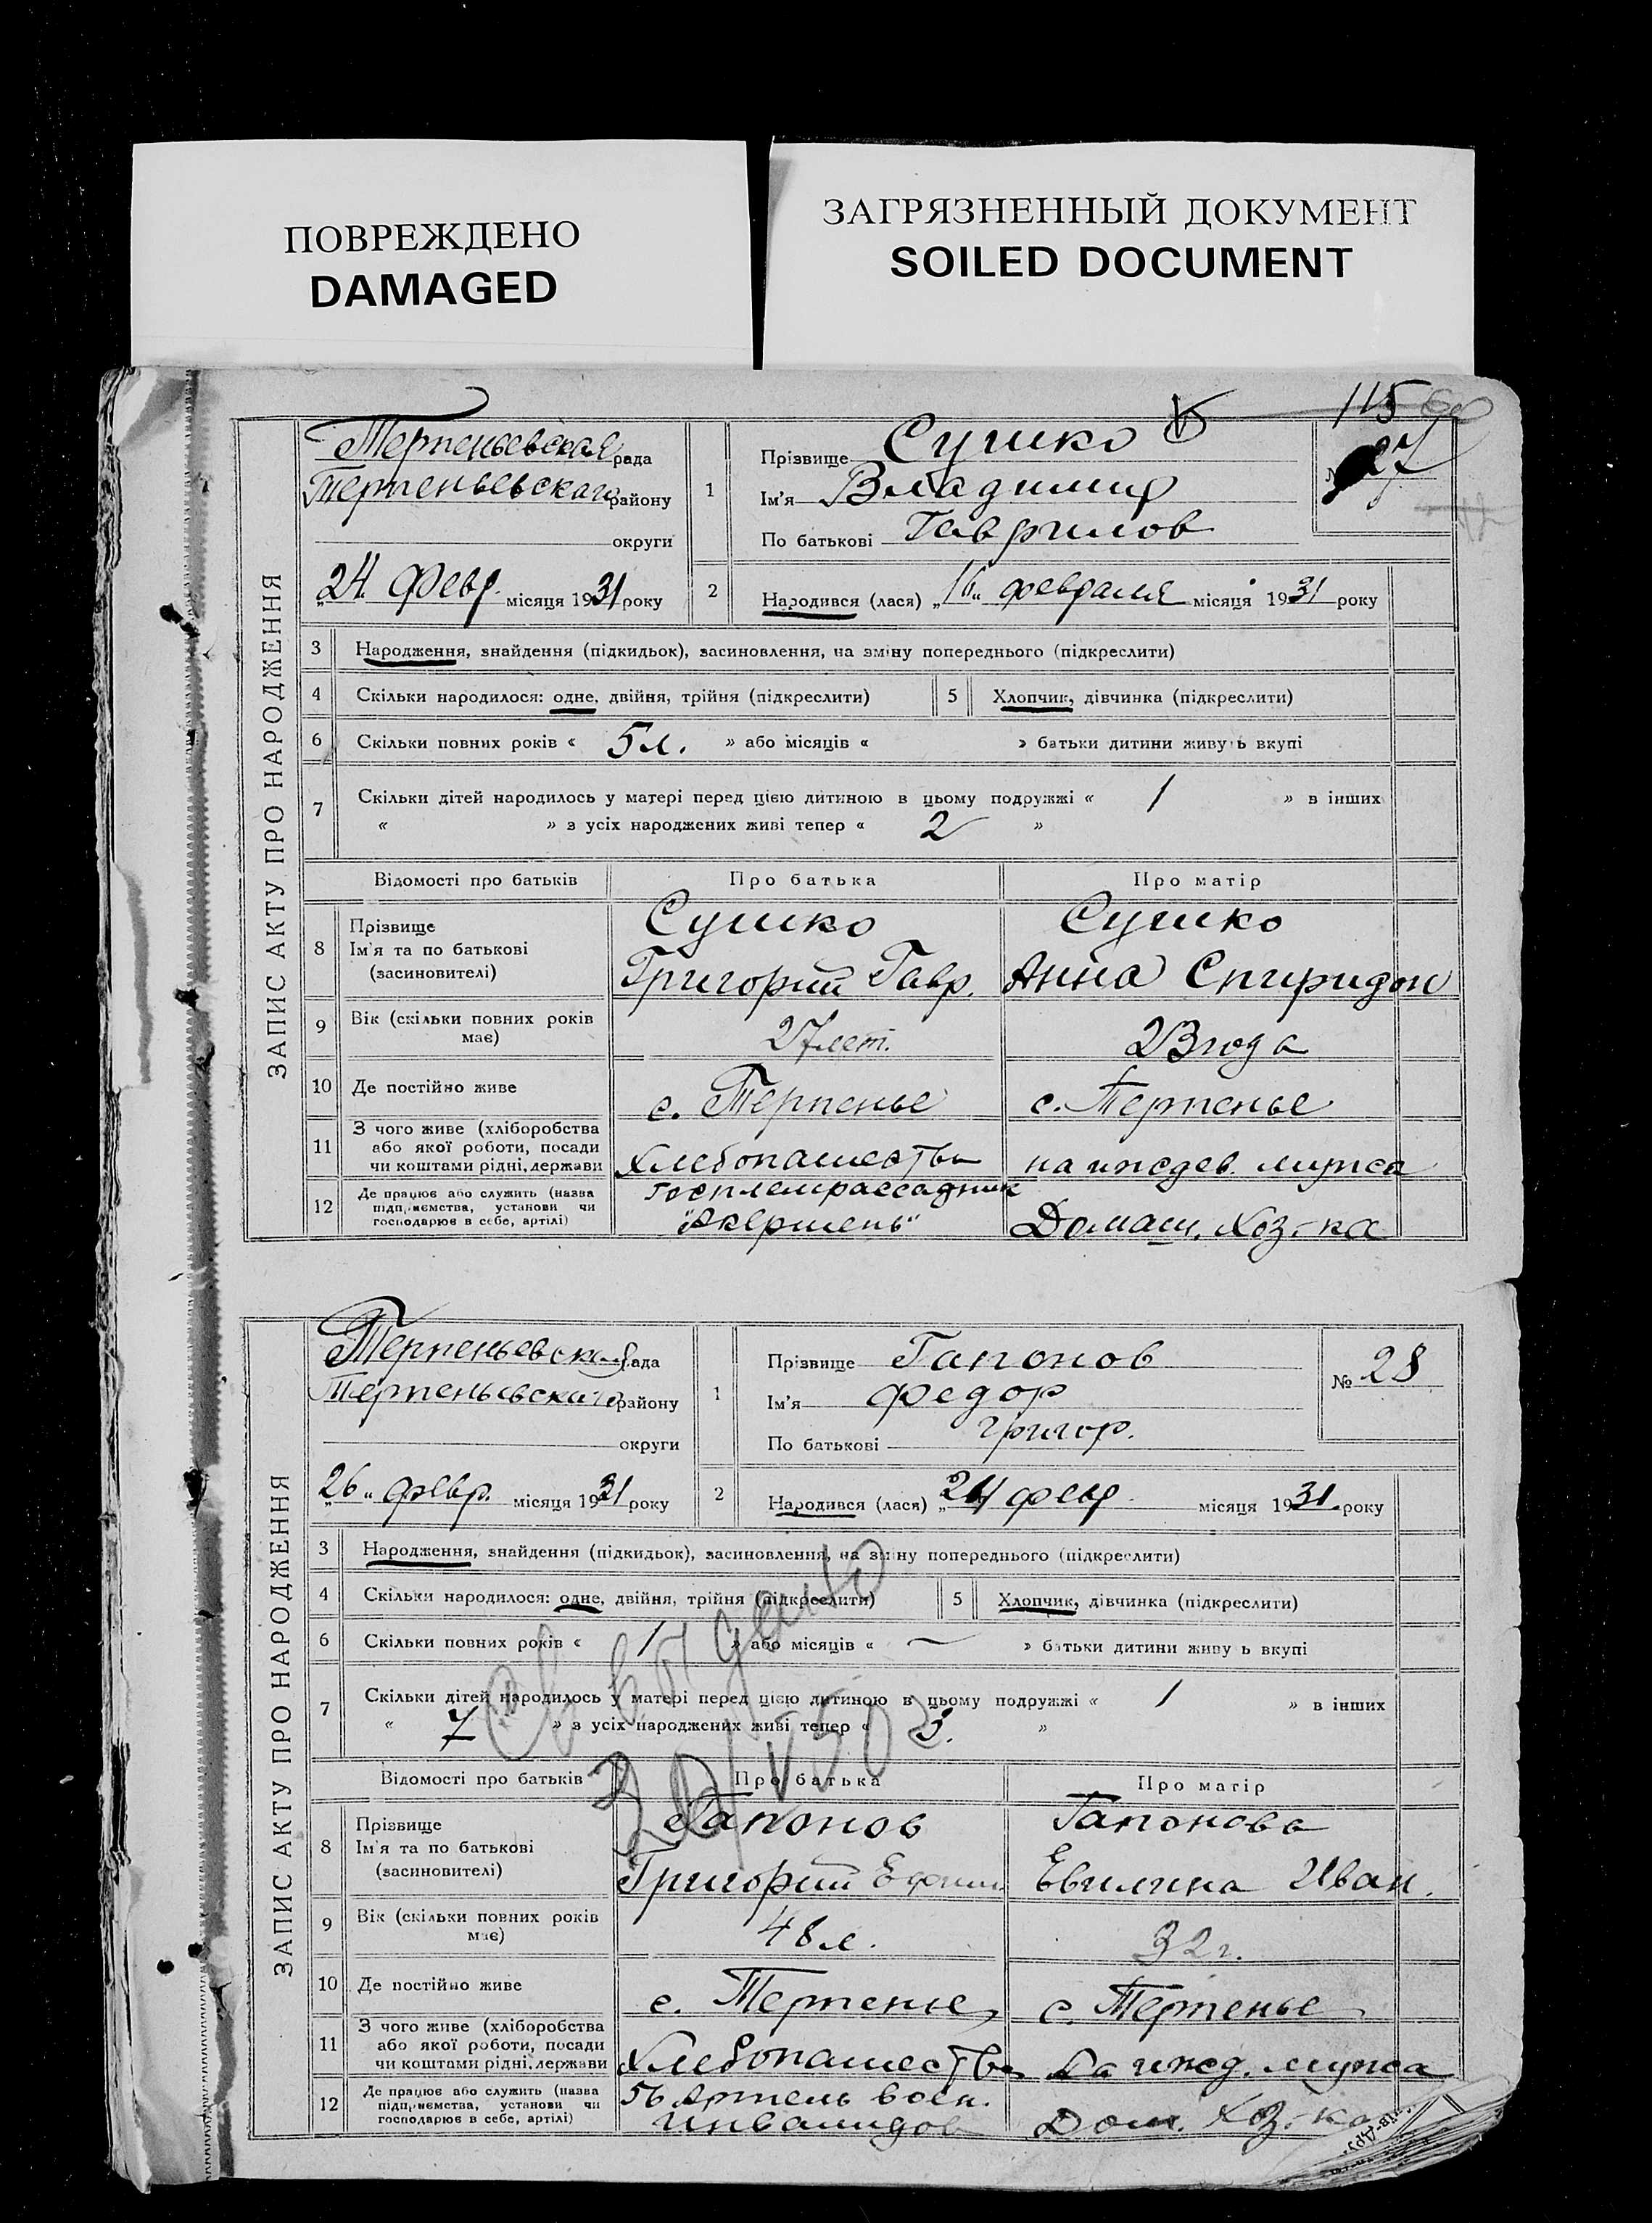 ПОВРЕЖДЕНО
DAMAGED
ЗАГРЯЗНЕННЫЙ ДОКУМЕНТ
SOILED DOCUMENT
115
ЗАПИС АКТУ ПРО НАРОДЖЕННЯ
Терпеньевская рада
Терпеньевскаго району
округи
„24 Февр. місяця 1931 року
1 Прізвище Сушко
Ім'я Владимир
По батькові Гаврилов
27
2 Народився (лася) „16„ февраля місяця 1931 року
3 Народження, знайдення (підкидьок), засиновлення, на зміну попереднього (підкреслити)
4 Скільки народилося: одне, двійня, трійня (підкреслити) 5 Хлопчик, дівчинка (підкреслити)
6 Скільки повних років « 5 л. » або місяців « » батьки дитини живуть вкупі
7 Скільки дітей народилось у матері перед цією дитиною в цьому подружжі « 1 » в інших
« » з усіх народжених живі тепер « 2 »
Відомості про батьків Про батька Про матір
8 Прізвище Сушко Сушко
Ім'я та по батькові
(засиновителі) Григорий Гавр. Анна Спиридон
9 Вік (скільки повних років має) 27 лет. 23 года
10 Де постійно живе с. Терпенье с. Терпенье
11 З чого живе (хліборобства
або якої роботи, посади
чи коштами рідні, держави Хлебопашество на иждев. мужа
12 Де працює або служить (назва
підприємства, установи чи
господарює в себе, артілі) Госплемрассадник
Домаш. Хоз-ка
ЗАПИС АКТУ ПРО НАРОДЖЕННЯ
Терпеньевская рада
Терпеньевскаго району
округи
„26„ февр. місяця 1931 року
1 Прізвище Гапонов
Ім'я Федор
По батькові Григор.
№ 28
2 Народився (лася) „24 февр місяця 1931 року
3 Народження, знайдення (підкидьок), засиновлення, на зміну попереднього (підкреслити)
4 Скільки народилося: одне, двійня, трійня (підкреслити) 5 Хлопчик, дівчинка (підкреслити)
6 Скільки повних років « 1 » або місяців « — » батьки дитини живу ь вкупі
7 Скільки дітей народилось у матері перед цією дитиною в цьому подружжі « 1 » в інших
« 7 » з усіх народжених живі тепер « 3. »
Відомості про батьків Про батька Про матір
8 Прізвище Гапонов Гапонова
Ім'я та по батькові
(засиновителі) Григорий Ефим. Евилина Иван.
9 Вік (скільки повних років має) 48 л. 32 г.
10 Де постійно живе с. Терпенье с. Терпенье
11 З чого живе (хліборобства
або якої роботи, посади
чи коштами рідні, держави Хлебопашество На ижд. мужа
12 Де працює або служить (назва
підприємства, установи чи
господарює в себе, артілі) Артель воен.
инвалидов Дом. Хоз-ка